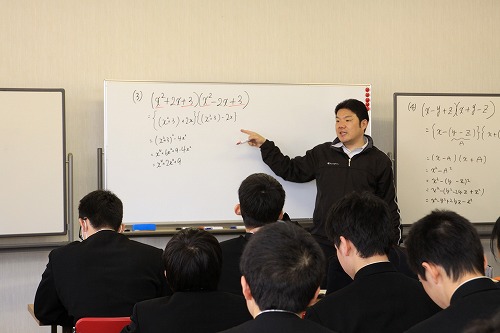 (3) (x²+2x+3)(x²-2x+3)
={(x²+3)+2x}{(x²+3)-2x}
=(x²+3)²-4x²
=x⁴+6x²+9-4x²
=x⁴+2x²+9
(4) (x-y+z)(x+y-z)
={x-(y-z)}{x+(
A
=(x-A)(x+A)
=x²-A²
=x²-(y-z)²
=x²-(y²-2yz+z²)
=x²-y²+2yz-z²